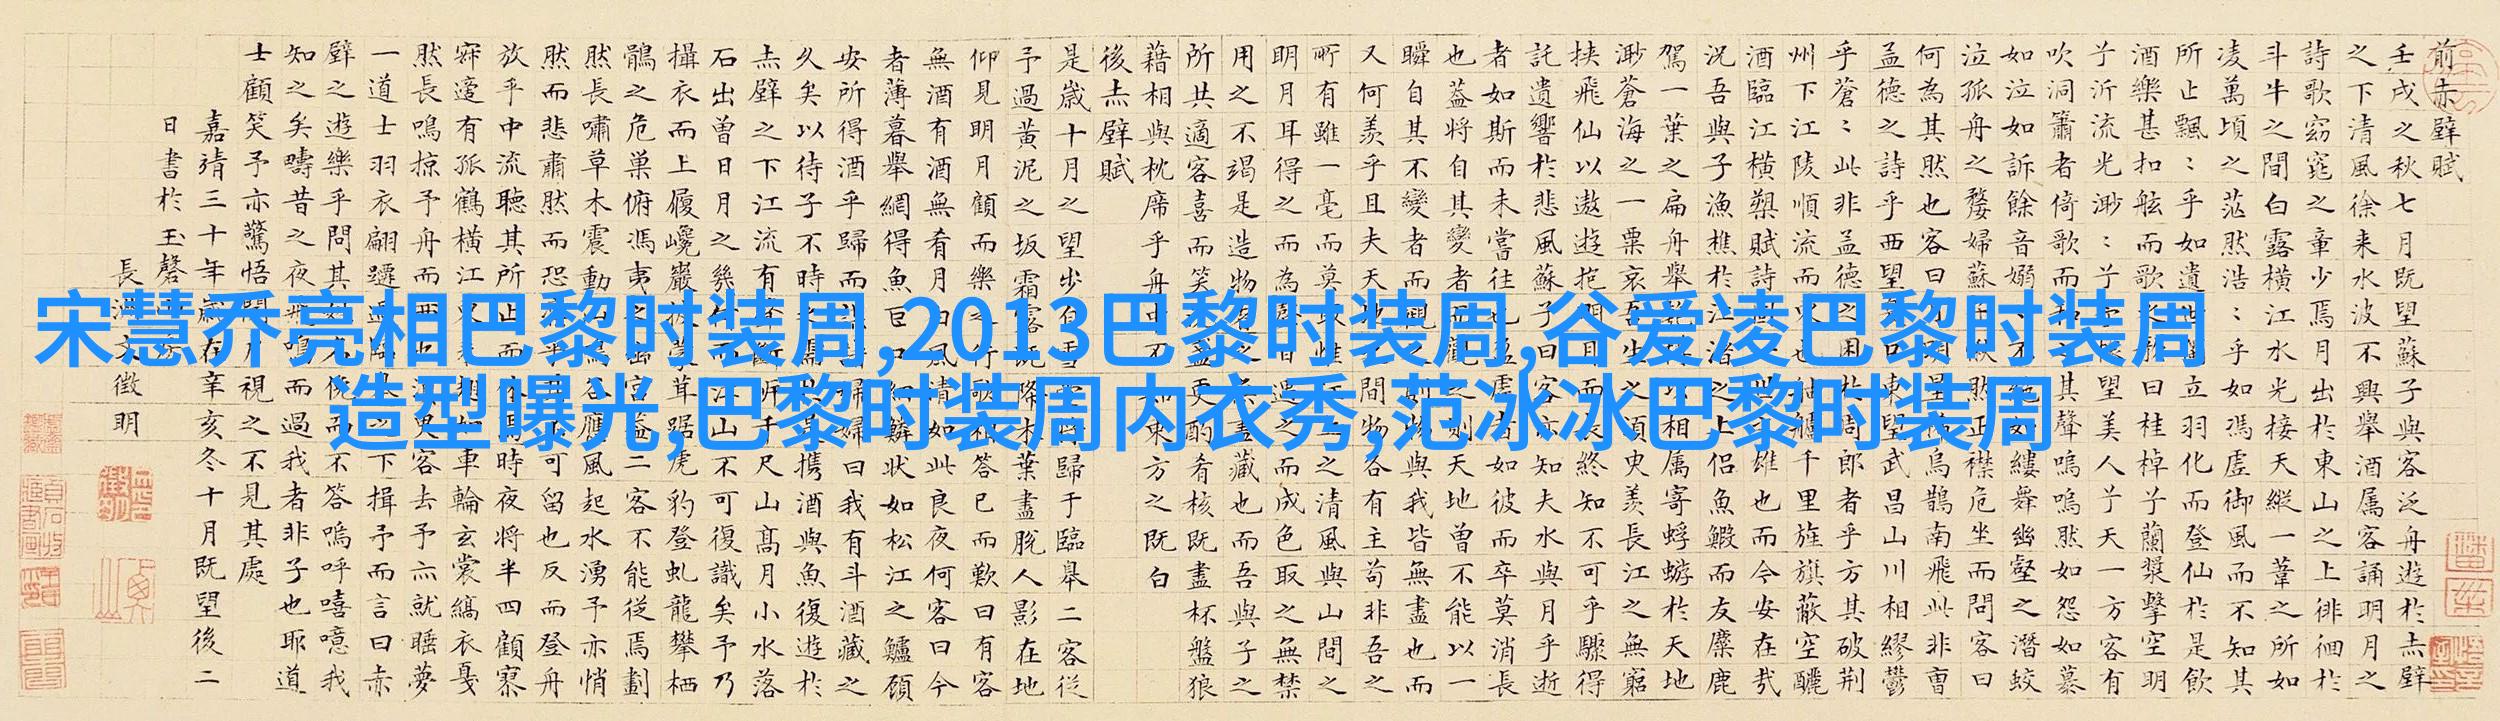 宋慧乔亮相巴黎时装周,2013巴黎时装周,谷爱凌巴黎时装周
造型曝光,巴黎时装周内衣秀,范冰冰巴黎时装周
前赤壁賦
壬戌之秋七月既望蘇子與客泛舟遊於赤壁
之下清風徐来水波不興舉酒属客誦明月之
詩歌窈窕之章少焉月出於東山之上徘徊於
斗牛之間白露横江水光接天縱一葦之所如
凌萬頃之茫然浩〻乎如馮虚御風而不知其
所止飄〻乎如遺立羽化而登仙於是飲
酒樂甚扣舷而歌曰桂棹兮蘭槳擊空明
兮泝流光渺〻兮望美人兮天一方客有
吹洞簫者倚歌而其聲嗚嗚然如怨如慕
如泣如訴餘音嫋如縷舞幽壑之潛蛟
泣孤舟之嫠婦蘇然正襟危坐而問客曰
何為其然也客曰烏鵲南飛此非曹
孟德之詩乎西望東望武昌山川相繆鬱
乎蒼〻此非孟德周郎者乎方其破荆
州下江陵順流而艫千里旌旗蔽空釃
酒臨江横槊賦詩雄也而今安在哉
况吾與子漁樵於之上侣魚鰕而友麋鹿
駕一葉之扁舟舉相属寄蜉蝣於天地
渺蒼海之一粟哀吾之須臾羨長江之無窮
挟飛仙以遨遊抱終知不可乎驟得
託遺響於悲風蘇子曰客亦知夫水與月乎逝
者如斯而未嘗往者如彼而卒莫消長
也蓋將自其變者則天地曾不能以一
瞬自其不變者而與我皆無盡也而
又何羨乎且夫天間物各有主苟非吾之
所有雖一毫而莫之清風與山間之
明月耳得之而為之而成色取之無禁
用之不竭是造物盡藏也而吾與子之
所共適客喜而笑更酌肴核既盡杯盤狼
藉相與枕席乎舟東方之既白
後赤壁賦
是歲十月之望步歸于臨皋二客從
予過黃泥之坂霜露既降木葉盡脫人影在地
仰見明月顧而樂之行歌相答已而歎曰有客
無酒有酒無肴月風清如此良夜何客曰今
者薄暮舉網得魚巨鱗狀如松江之鱸顧
安所得酒乎歸而婦曰我有斗酒藏之
久矣以待子不時携酒與魚復遊於
赤壁之下江流有千尺山髙月小水落
石出曾日月之幾山不可復識矣予乃
攝衣而上履巉巖茸踞虎豹登虬龍攀栖
鶻之危巢俯馮夷二客不能從焉劃
然長嘯草木震動谷應風起水湧予亦悄
然而悲肅然而恐可留也反而登舟
放乎中流聽其所止而時夜将半四顧寥
寂適有孤鶴横江車輪玄裳縞衣戛
然長鳴掠予舟而西臾客去予亦就睡夢
一道士羽衣翩躚之下揖予而言曰赤
壁之遊樂乎問其不答嗚呼嘻噫我
知之矣疇昔之夜飛鳴而過我者非子也耶道
士顧笑予亦驚悟開戶視之不見其處
嘉靖三十年歲在辛亥冬十月既望後二
日書於玉磬
長徵明